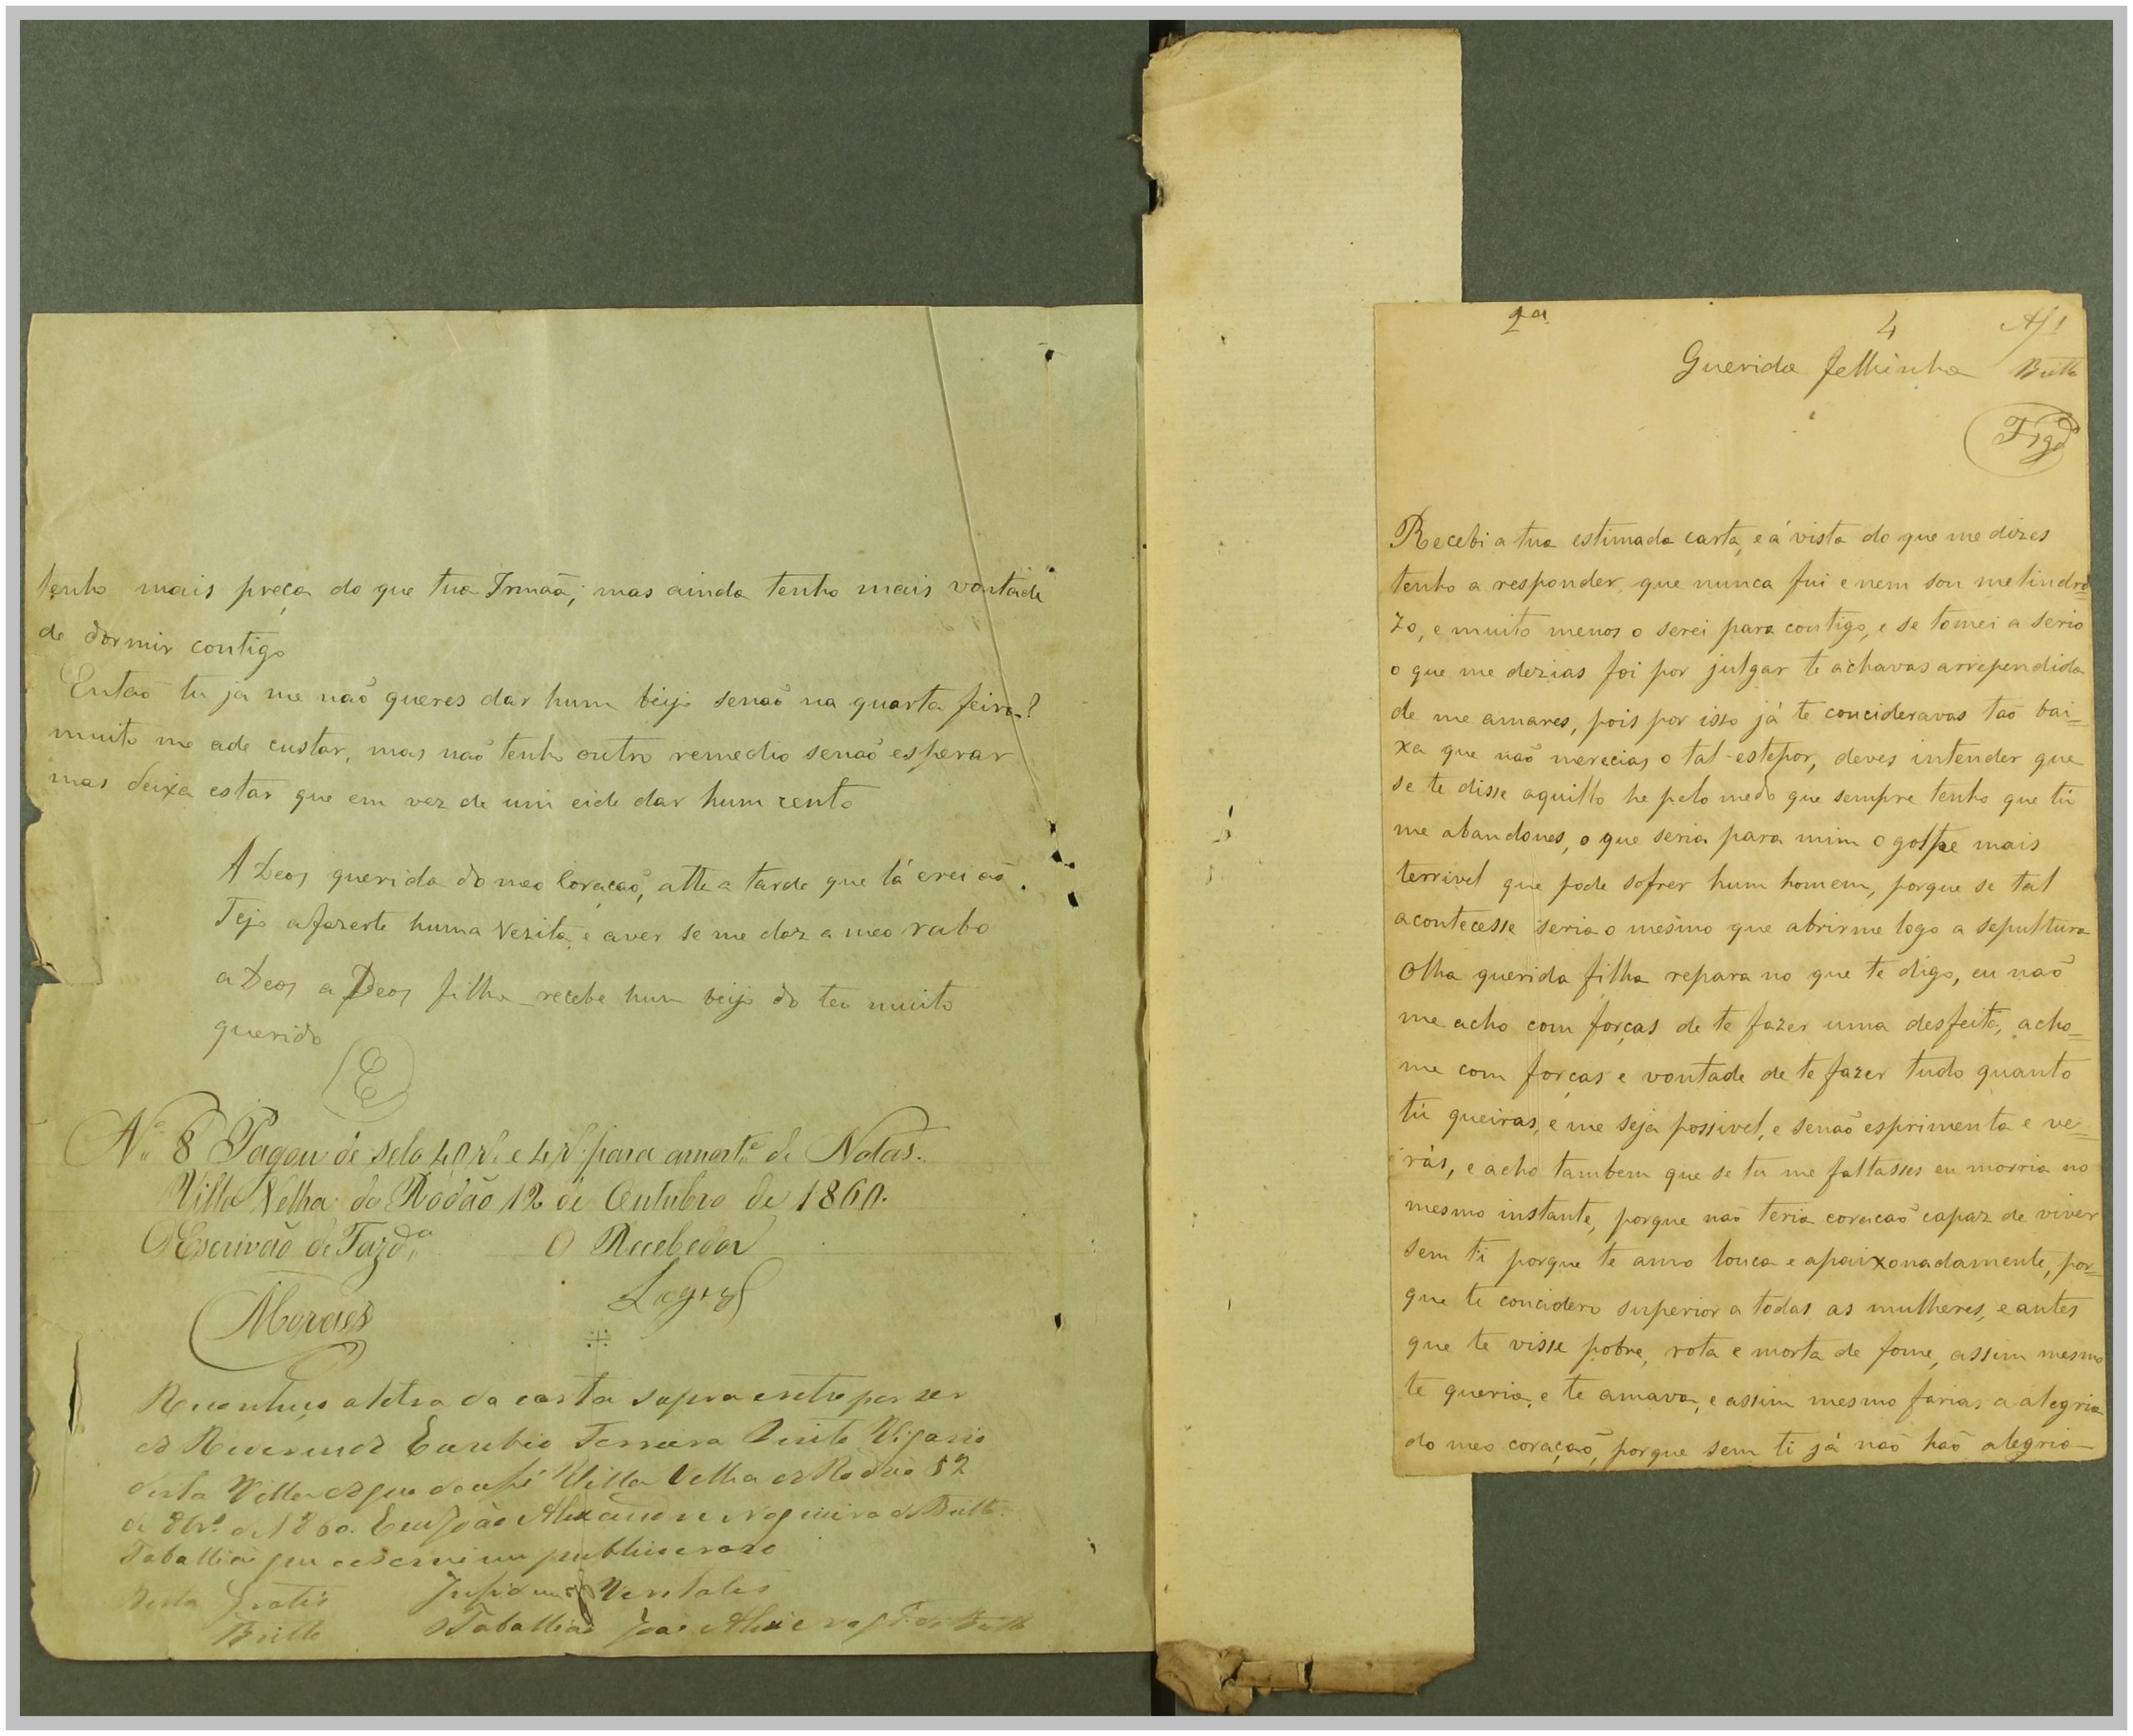 tenho mais preça do que tua Irmaã; mas ainda tenho mais vontade
de dormir contigo
Entaõ tu ja me naõ queres dar hum beijo senaõ na quarta feira?
muito me ade custar, mas naõ tenho outro remedio senaõ esperar
mas deixa estar que em vez de um eide dar hum cento
A Deos querida do meo Coraçaõ, atte a tarde que lá erei aõ
Tejo afazerte huma vezita, e aver se me daz a meo rabo
a Deos a Deos filha recebe hum beijo do teu muito
querido
E
Nº 8 Pagou de sello 40 rs. e 4 rs. para amortº de Notas.
Villa Velha do Rodão 12 de Outubro de 1860.
O Escrivão de Fazdª O Recebedor
Moraes
Reconheço a letra da carta supra e retro por ser
do Reverendo Euzebio Vigario
desta Villa do que dou fé Villa Velha do Rodão 12
de 8brº de 1860. Eu João Alexandre Nogueira de Britto
Taballião que o escrevi em publico e raso
Desta gratis Veritates
Britto O Taballião João
2ª 4
Querida fellinha Britto
Recebi a tua estimada carta, e á vista do que me dizes
tenho a responder que nunca fui e nem sou melindro=
zo, e muito menos o serei para contigo, e se tomei a serio
o que me dezias foi por julgar te achavas arrependida
de me amares, pois por isso já te concideravas taõ bai=
xa que naõ merecias o tal estepor, deves intender que
se te disse aquillo he pelo medo que sempre tenho que tú
me abandones, o que seria para mim o golpe mais
terrivel que pode sofrer hum homem, porque se tal
acontecesse seria o mesmo que abrirme logo a sepultura
Olha querida filha repara no que te digo, eu naõ
me acho com forças de te fazer uma desfeita, acho=
me com forças e vontade de te fazer tudo quanto
tú queiras, e me seja possivel, e senaõ esprimenta e ve=
rás, e acho tambem que se tu me faltasses eu morria no
mesmo instante, porque naõ teria coracaõ capaz de viver
sem ti porque te amo louca e apaixonadamente, por=
que te concidero superior a todas as mulheres, e antes
que te visse pobre, rota e morta de fome, assim mesmo
te queria, e te amava, e assim mesmo farias a alegria
do meo coraçaõ, porque sem ti já naõ haõ alegria